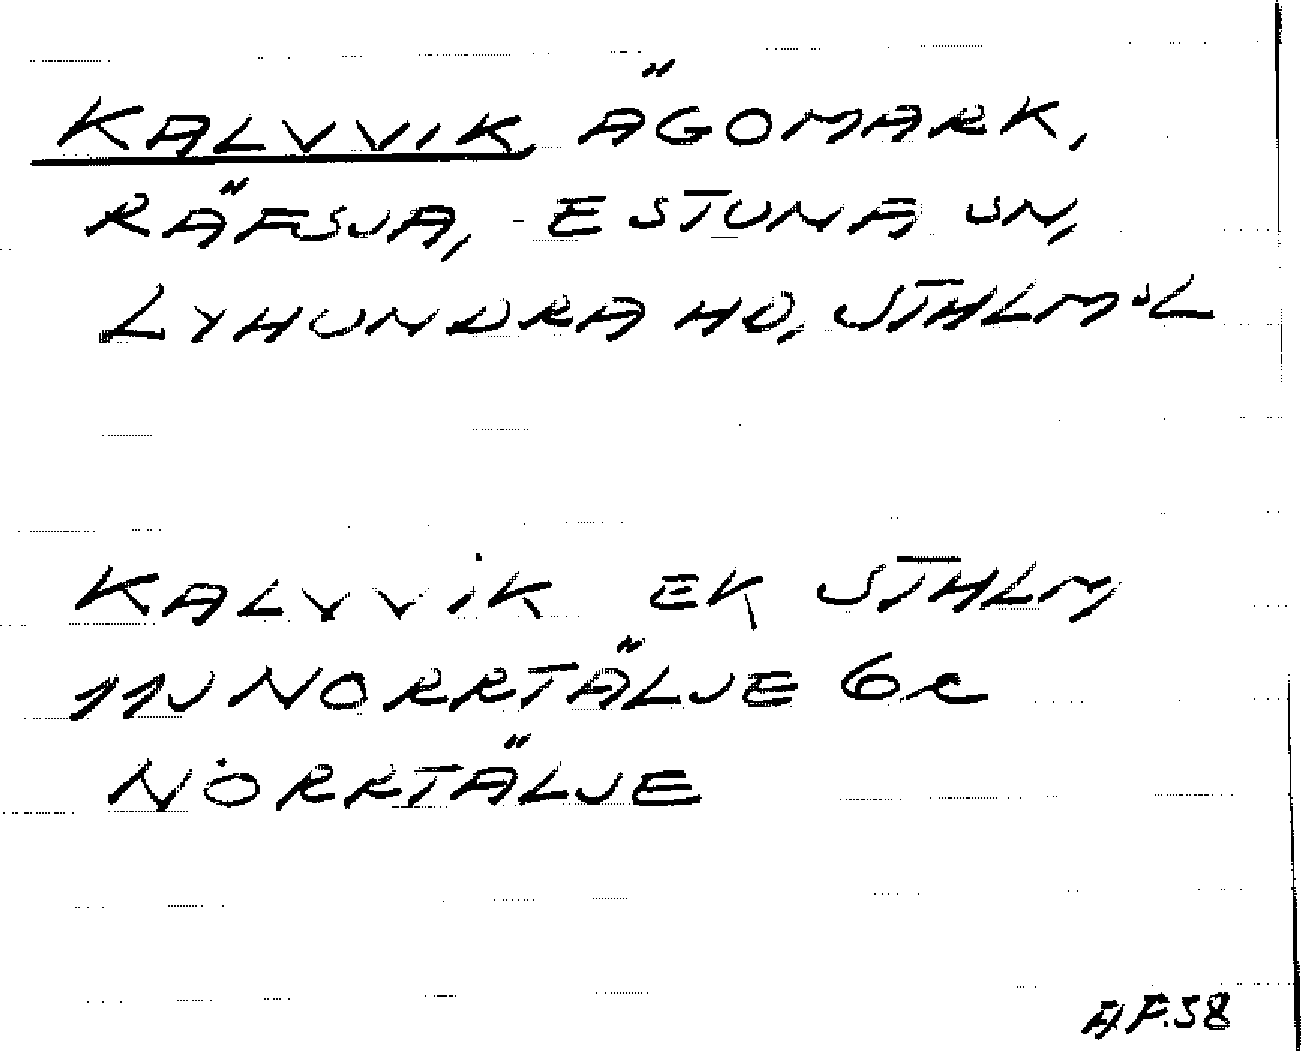 KALVVIK, ÄGOMARK,
RÄFSJA, - ESTUNA SN,
LYHUNDRA HD, STHLMSL
KALVVIK EK STHLM,
11J NORRTÄLJE 6e
NORRTÄLJE
A.F.58